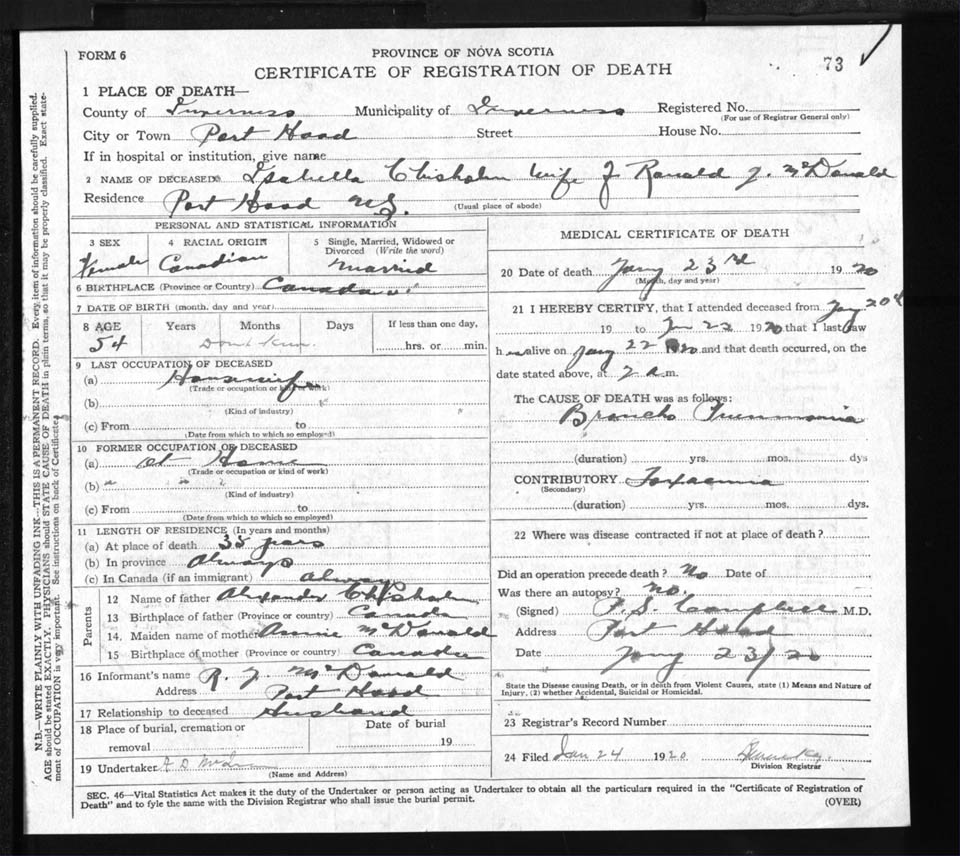 FORM 6
PROVINCE OF NOVA SCOTIA
CERTIFICATE OF REGISTRATION OF DEATH
73
1 PLACE OF DEATH—
County of Inverness Municipality of Inverness Registered No.
(For use of Registrar General only)
City or Town Port Hood Street House No.
If in hospital or institution, give name
2 NAME OF DECEASED Isabella Chisholm wife of Ranald J. McDonald
Residence Port Hood N.S.
(Usual place of abode)
PERSONAL AND STATISTICAL INFORMATION
3 SEX 4 RACIAL ORIGIN 5 Single, Married, Widowed or Divorced (Write the word)
Female Canadian Married
6 BIRTHPLACE (Province or Country) Canada
7 DATE OF BIRTH (month, day and year)
8 AGE Years Months Days If less than one day,
54 hrs. or min.
9 LAST OCCUPATION OF DECEASED
(a) Housewife
(Trade or occupation or kind of work)
(b)
(Kind of industry)
(c) From to
(Date from which to which so employed)
10 FORMER OCCUPATION OF DECEASED
(a) at Home
(Trade or occupation or kind of work)
(b)
(Kind of industry)
(c) From to
(Date from which to which so employed)
11 LENGTH OF RESIDENCE (In years and months)
(a) At place of death 35 years
(b) In province Always
(c) In Canada (if an immigrant) always
Parents
12 Name of father Alexander Chisholm
13 Birthplace of father (Province or country) Canada
14. Maiden name of mother Annie McDonald
15 Birthplace of mother (Province or country) Canada
16 Informant's name R. J. McDonald
Address Port Hood
17 Relationship to deceased Husband
18 Place of burial, cremation or removal Date of burial 19
19 Undertaker
(Name and Address)
MEDICAL CERTIFICATE OF DEATH
20 Date of death Jany 23rd 1920
(Month, day and year)
21 I HEREBY CERTIFY, that I attended deceased from Jany 20th
19 to Jan 22 1920 that I last saw
h er alive on Jany 22 1920 and that death occurred, on the
date stated above, at 2 a.m.
The CAUSE OF DEATH was as follows:
Broncho Pneumonia
(duration) yrs. mos. dys
CONTRIBUTORY Toxaemia
(Secondary)
(duration) yrs. mos. dys.
22 Where was disease contracted if not at place of death?
Did an operation precede death? No Date of
Was there an autopsy? No.
(Signed) P. S. Campbell M.D.
Address Port Hood
Date Jany 23/20
State the Disease causing Death, or in death from Violent Causes, state (1) Means and Nature of
Injury, (2) whether Accidental, Suicidal or Homicidal.
23 Registrar's Record Number
24 Filed Jan 24 1920
Division Registrar
SEC. 46—Vital Statistics Act makes it the duty of the Undertaker or person acting as Undertaker to obtain all the particulars required in the "Certificate of Registration of
Death" and to fyle the same with the Division Registrar who shall issue the burial permit.
(OVER)
N.B.—WRITE PLAINLY WITH UNFADING INK—THIS IS A PERMANENT RECORD. Every item of information should be carefully supplied.
AGE should be stated EXACTLY. PHYSICIANS should STATE CAUSE OF DEATH in plain terms, so that it may be properly classified. Exact state-
ment of OCCUPATION is very important. See instructions on back of Certificate.